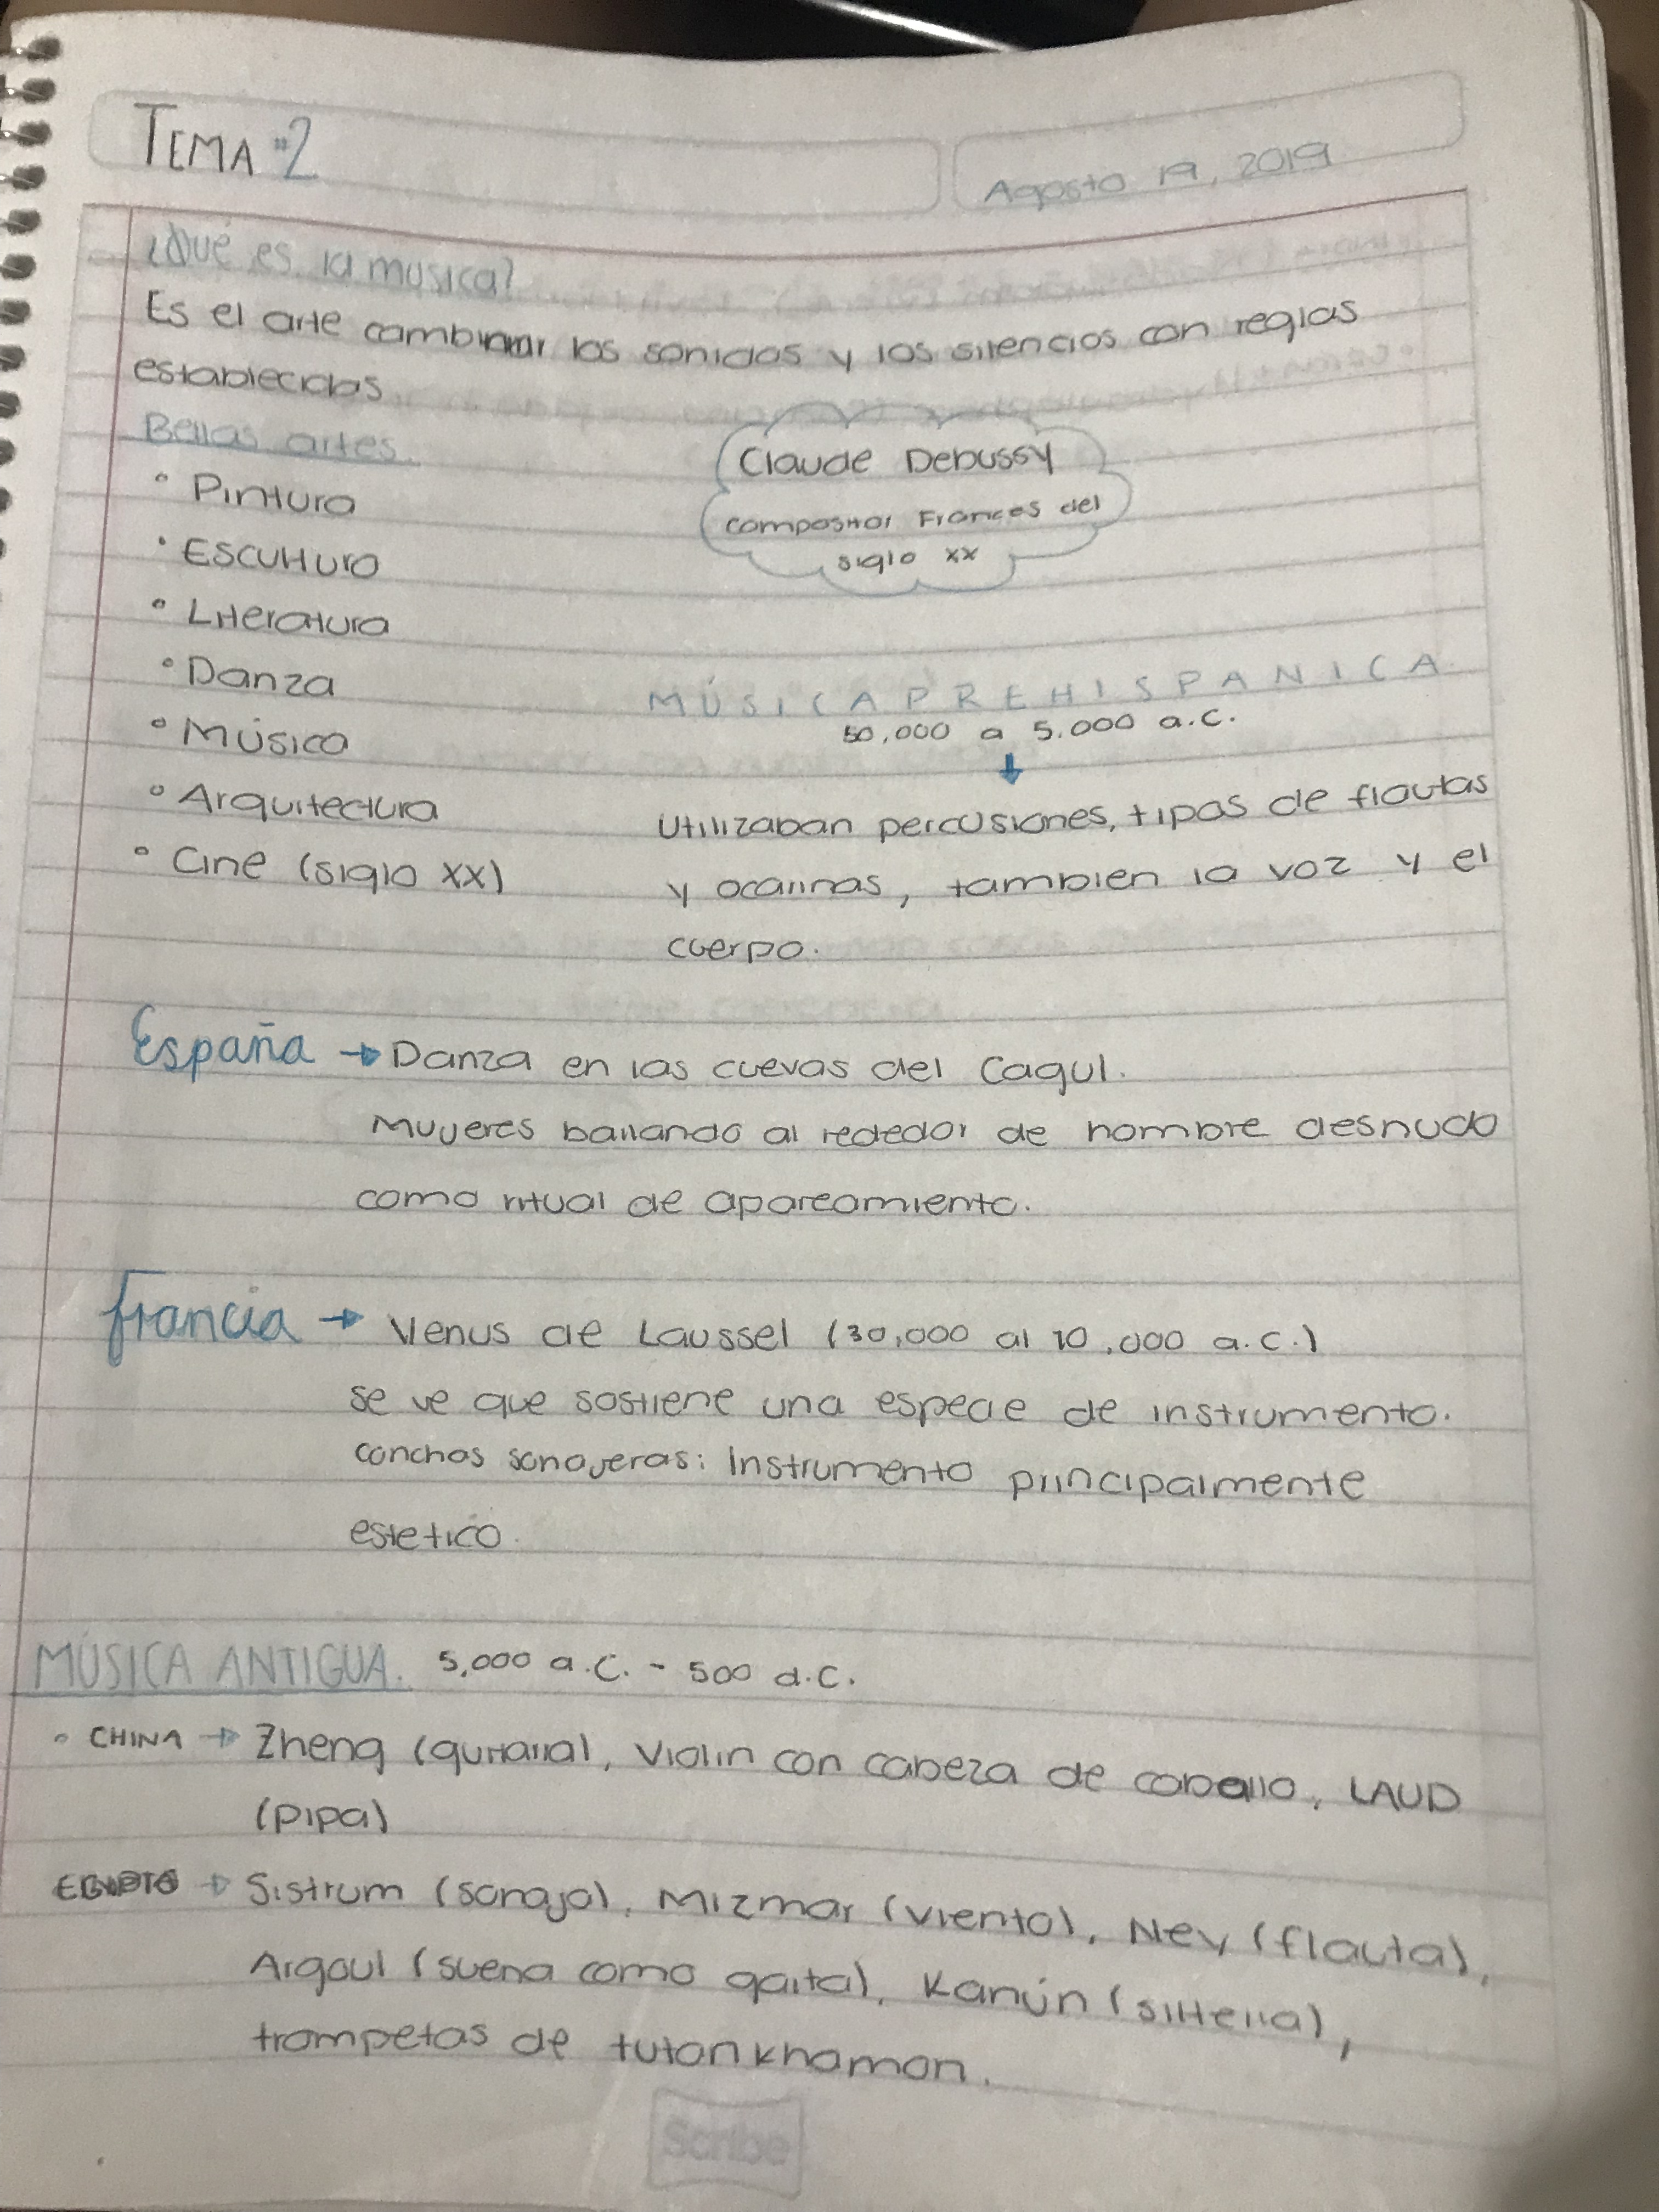 TEMA #2
Agosto 19, 2019
¿Qué es la musica?
Es el arte combinar los sonidos y los silencios con reglas
establecidas
Bellas artes.
• Pintura
• Escultura
• Literatura
• Danza
• Música
• Arquitectura
• Cine (siglo XX)
Claude Debussy
compositor Frances del
siglo XX
MÚSICA PREHISPANICA
50,000 a 5.000 a.C.
Utilizaban percusiones, tipos de flautas
y ocarinas, tambien la voz y el
cuerpo.
España → Danza en las cuevas del Cagul.
Mujeres bailando al rededor de hombre desnudo
como ritual de apareamiento.
Francia → Venus de Laussel (30,000 al 10,000 a.C.)
se ve que sostiene una especie de instrumento.
conchas sonajeras: Instrumento principalmente
estetico.
MÚSICA ANTIGUA. 5,000 a.C. - 500 d.C.
• CHINA → Zheng (guitarra), Violin con cabeza de caballo, LAUD
(pipa)
EGIPTO → Sistrum (sonaja), Mizmar (viento), Ney (flauta),
Argoul (suena como gaita), Kanún (sitella),
trompetas de tutankhamon.
Scribe